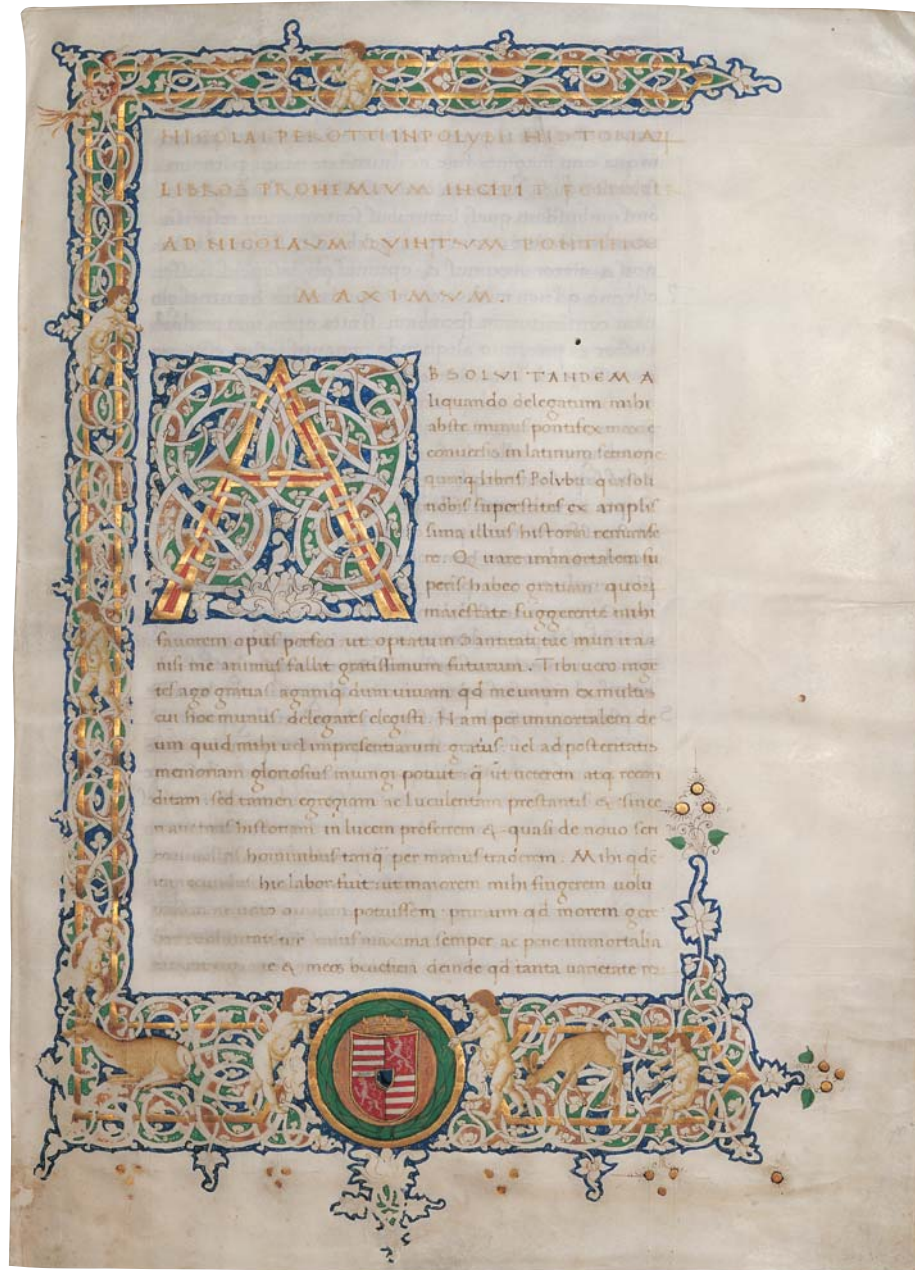 NICOLAI PEROTTI IN POLYBII HISTORIAꝜ
LIBROS PROHEMIVM INCIPIT FELICITER
AD NICOLAVM QVINTVM PONTIFICE
MAXIMVM.
ABSOLVI TANDEM A
liquando delegatum mihi
abste munus pontifex max e
conuersis in latinum sermone
quinq libris Polybii qui soli
nobis superstites ex amplis
sima illius historia remanse
re. Quare immortalem su
peris habeo gratiam quoꝝ
maiestate suggerente mihi
fauorem opus perfeci ut optatum Sanctitati tue
nisi me animus fallit gratissimum futurum. Tibi uero
ago gratias agamq dum uiuam qd me unum ex multis
cui hoc munus delegares elegisti. Nam per immortalem de
um quid mihi uel impresentiarum gratius uel ad posteritatis
memoriam gloriosius iniungi potuit q̄ ut ueterem atq recon
ditam sed tamen egregiam ac luculentam prestantis &
historiam in lucem proferrem & quasi de nouo
hominibus tanq̄ per manus traderem. Mihi qdē
hic labor fuit ut maiorem mihi fingerem uolu
potuissem primum qd morem gere
maxima semper ac pene immortalia
& meos beneficia deinde qd tanta uarietate re